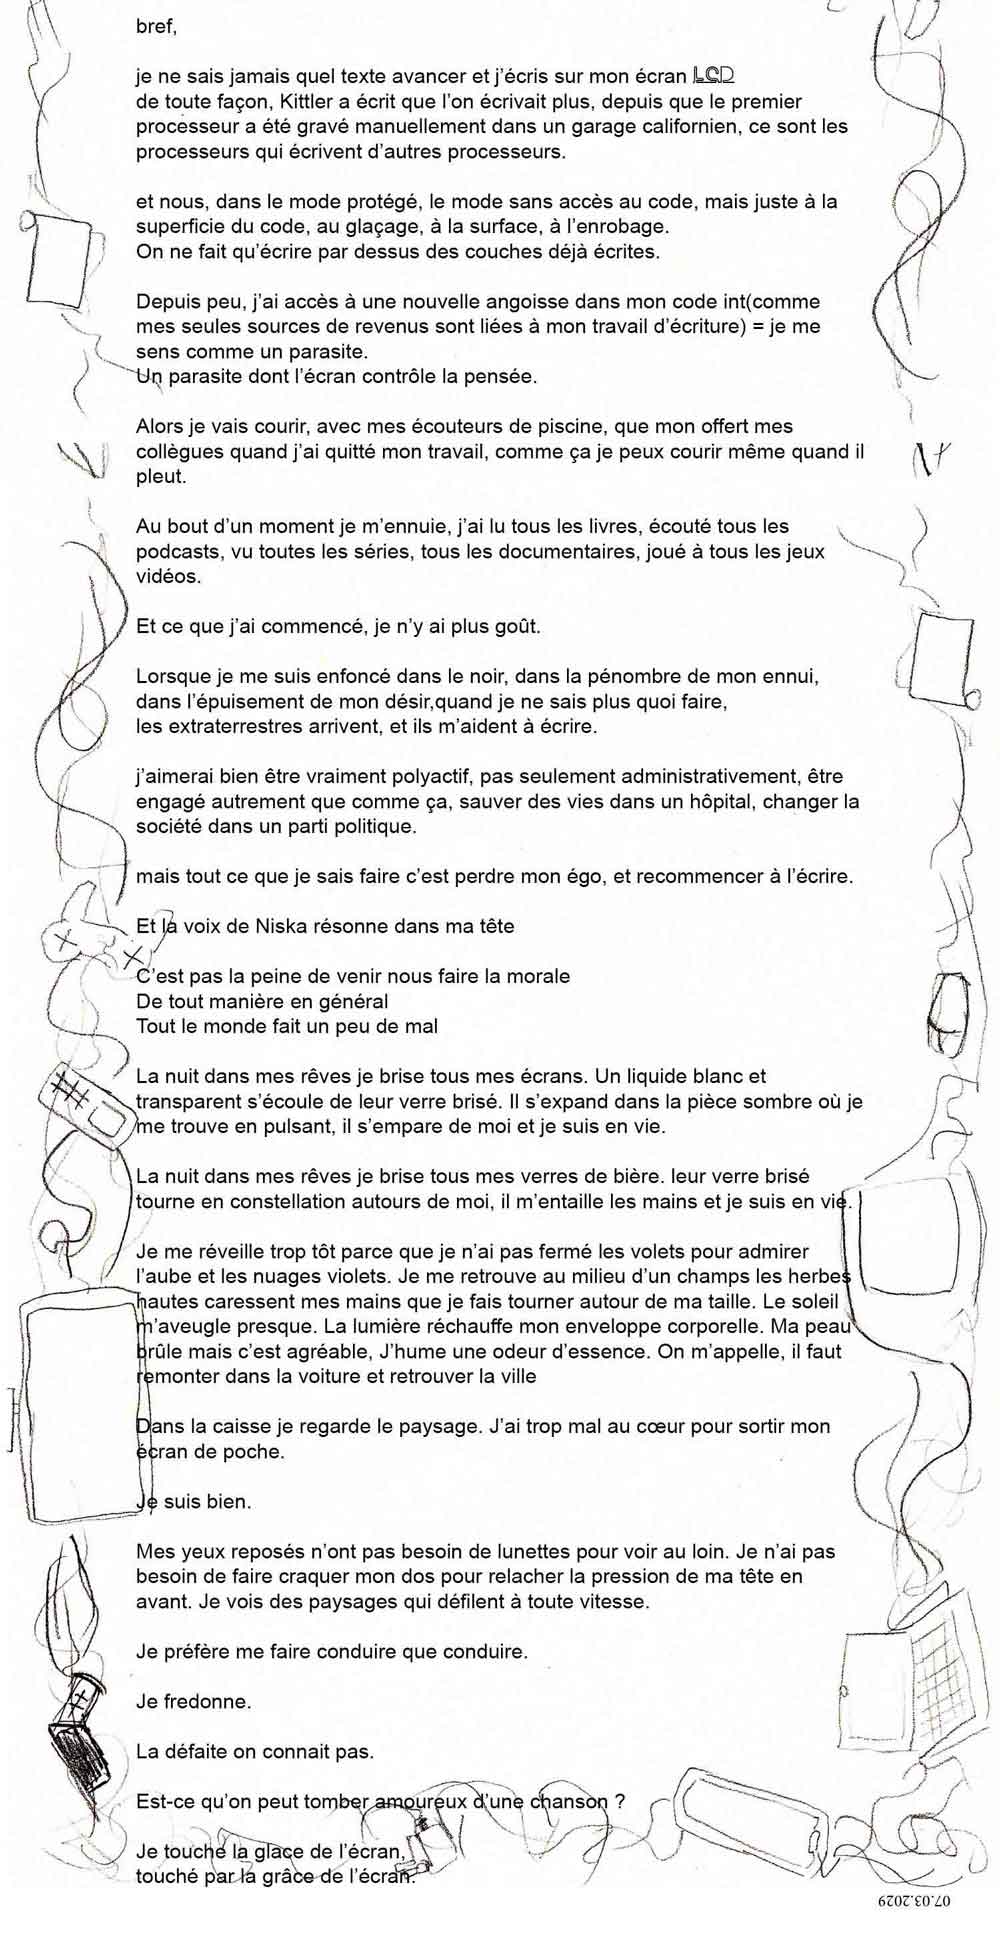 bref,
je ne sais jamais quel texte avancer et j’écris sur mon écran LCD
de toute façon, Kittler a écrit que l’on écrivait plus, depuis que le premier
processeur a été gravé manuellement dans un garage californien, ce sont les
processeurs qui écrivent d’autres processeurs.
et nous, dans le mode protégé, le mode sans accès au code, mais juste à la
superficie du code, au glaçage, à la surface, à l’enrobage.
On ne fait qu’écrire par dessus des couches déjà écrites.
Depuis peu, j’ai accès à une nouvelle angoisse dans mon code int(comme
mes seules sources de revenus sont liées à mon travail d’écriture) = je me
sens comme un parasite.
Un parasite dont l’écran contrôle la pensée.
Alors je vais courir, avec mes écouteurs de piscine, que mon offert mes
collègues quand j’ai quitté mon travail, comme ça je peux courir même quand il
pleut.
Au bout d’un moment je m’ennuie, j’ai lu tous les livres, écouté tous les
podcasts, vu toutes les séries, tous les documentaires, joué à tous les jeux
vidéos.
Et ce que j’ai commencé, je n’y ai plus goût.
Lorsque je me suis enfoncé dans le noir, dans la pénombre de mon ennui,
dans l’épuisement de mon désir,quand je ne sais plus quoi faire,
les extraterrestres arrivent, et ils m’aident à écrire.
j’aimerai bien être vraiment polyactif, pas seulement administrativement, être
engagé autrement que comme ça, sauver des vies dans un hôpital, changer la
société dans un parti politique.
mais tout ce que je sais faire c’est perdre mon égo, et recommencer à l’écrire.
Et la voix de Niska résonne dans ma tête
C’est pas la peine de venir nous faire la morale
De tout manière en général
Tout le monde fait un peu de mal
La nuit dans mes rêves je brise tous mes écrans. Un liquide blanc et
transparent s’écoule de leur verre brisé. Il s’expand dans la pièce sombre où je
me trouve en pulsant, il s’empare de moi et je suis en vie.
La nuit dans mes rêves je brise tous mes verres de bière. leur verre brisé
tourne en constellation autours de moi, il m’entaille les mains et je suis en vie.
Je me réveille trop tôt parce que je n’ai pas fermé les volets pour admirer
l’aube et les nuages violets. Je me retrouve au milieu d’un champs les herbes
hautes caressent mes mains que je fais tourner autour de ma taille. Le soleil
m’aveugle presque. La lumière réchauffe mon enveloppe corporelle. Ma peau
brûle mais c’est agréable, J’hume une odeur d’essence. On m’appelle, il faut
remonter dans la voiture et retrouver la ville
Dans la caisse je regarde le paysage. J’ai trop mal au cœur pour sortir mon
écran de poche.
Je suis bien.
Mes yeux reposés n’ont pas besoin de lunettes pour voir au loin. Je n’ai pas
besoin de faire craquer mon dos pour relacher la pression de ma tête en
avant. Je vois des paysages qui défilent à toute vitesse.
Je préfère me faire conduire que conduire.
Je fredonne.
La défaite on connait pas.
Est-ce qu’on peut tomber amoureux d’une chanson ?
Je touche la glace de l’écran,
touché par la grâce de l’écran.
07.03.2029